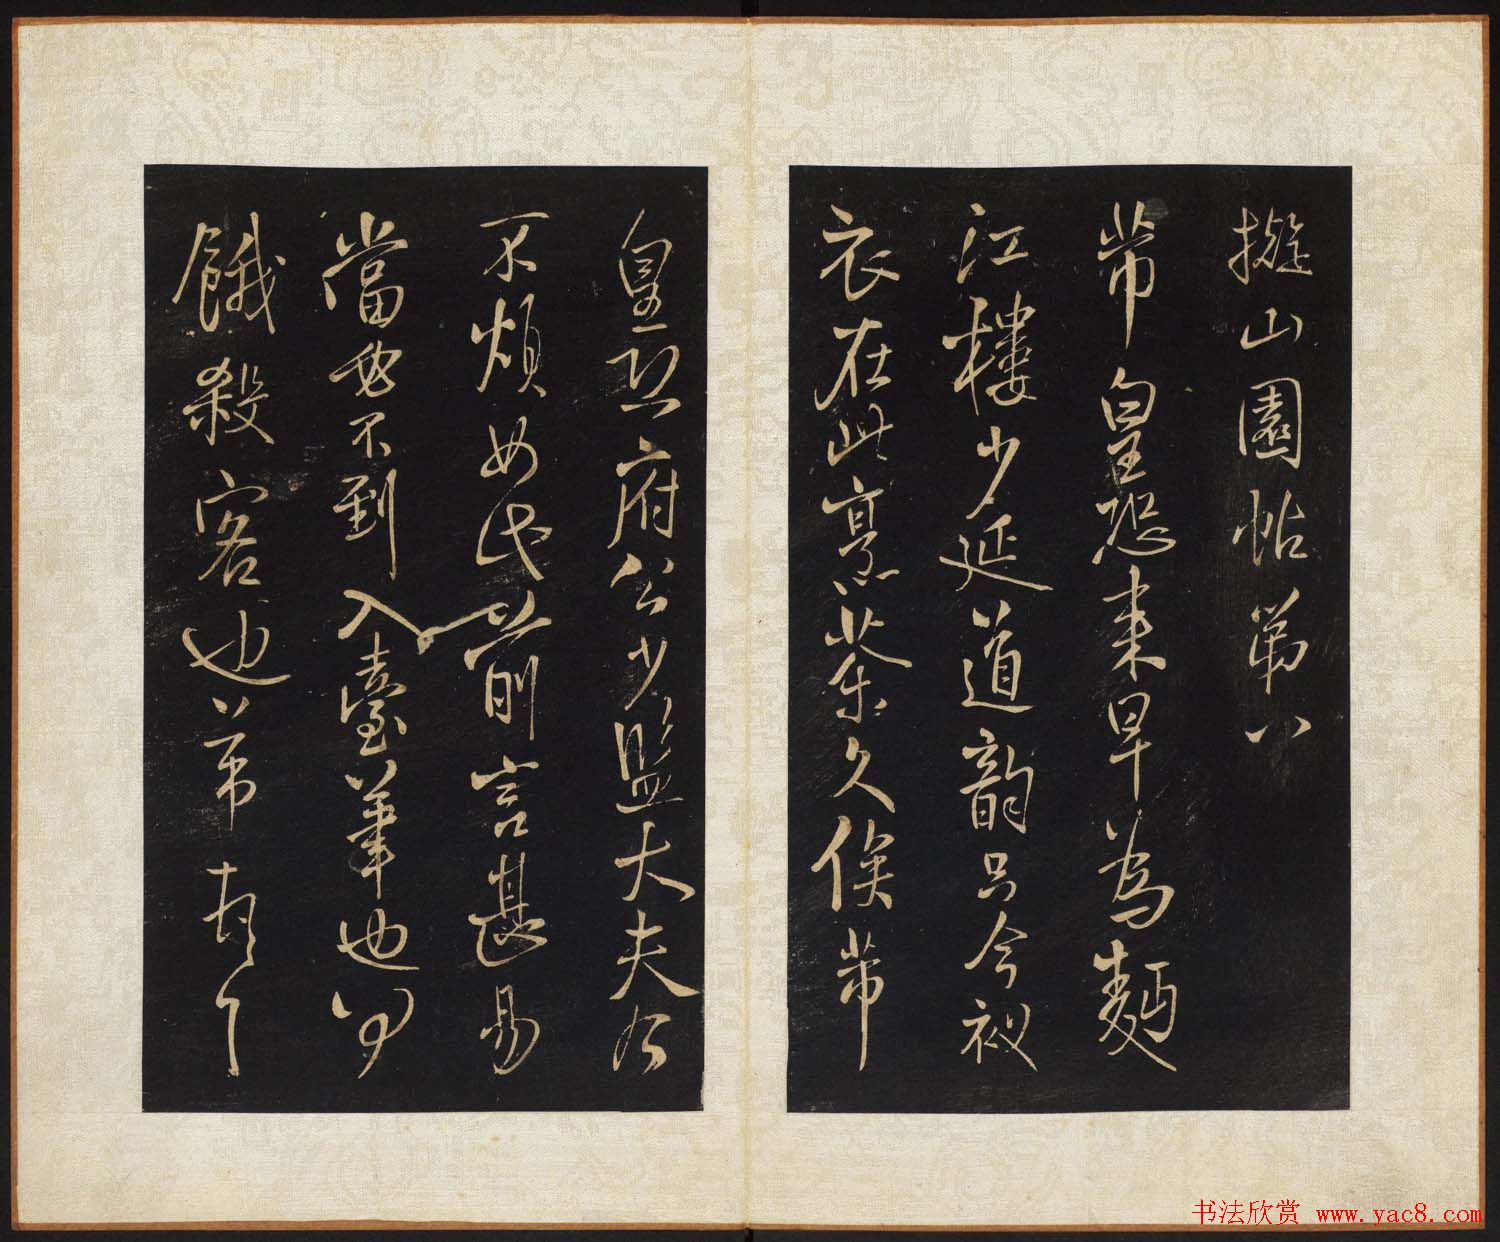 擬山園帖第八
芾皇恐来早為麵
江樓少延道韻只今被
衣在此烹茶久俟芾
皇恐府公少監大夫
不煩如氏前言甚易
當不到入臺華也
餓殺客也芾頓
书法欣赏 www.yac8.com